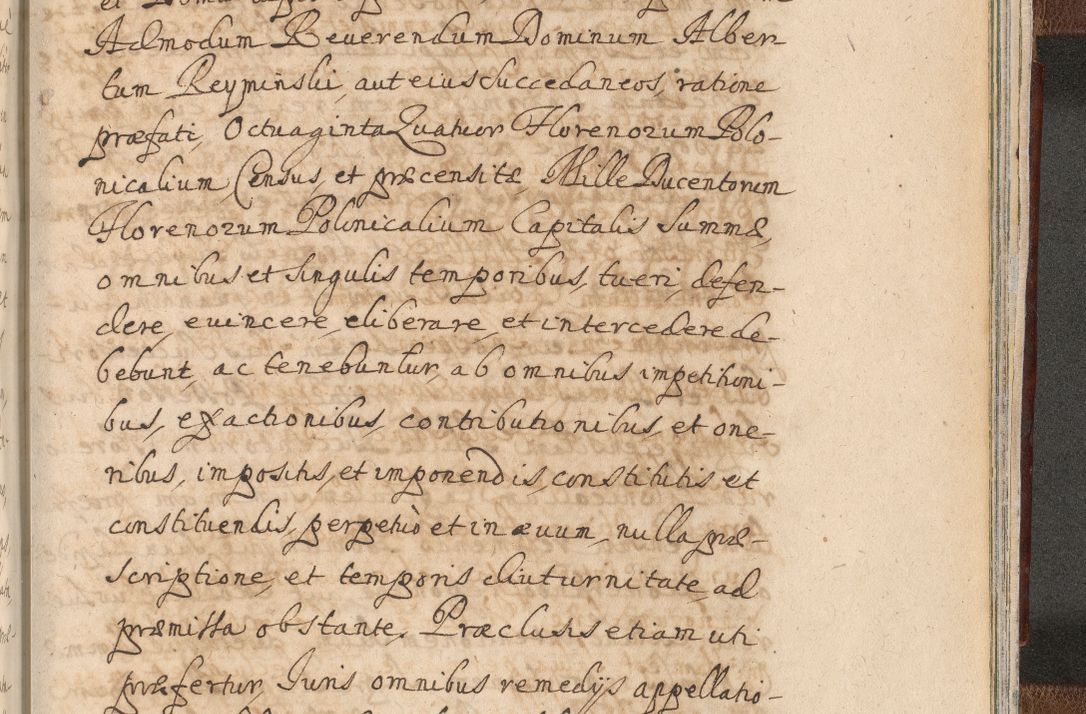 Admodum Reuerendum Dominum Alber-
tum Reyminski, aut eius Succedaneos, ratione
præfati, Octuaginta Quatuor Florenorum Polo-
nicalium Census, et præcensitæ, Mille Ducentorum
Florenorum Polonicalium Capitalis Summæ,
omnibus et singulis temporibus, tueri, defen-
dere, euincere, eliberare, et intercedere de-
bebunt, ac tenebuntur, ab omnibus impetitioni-
bus, exactionibus, contributionibus, et one-
ribus, impositis, et imponendis, constitutis et
constituendis, perpetuò et in æuum, nulla præ-
scriptione, et temporis diuturnitate, ad
præmissa obstante. Præclusis etiam uti
præfertur, Iuris omnibus remedijs appellatio-